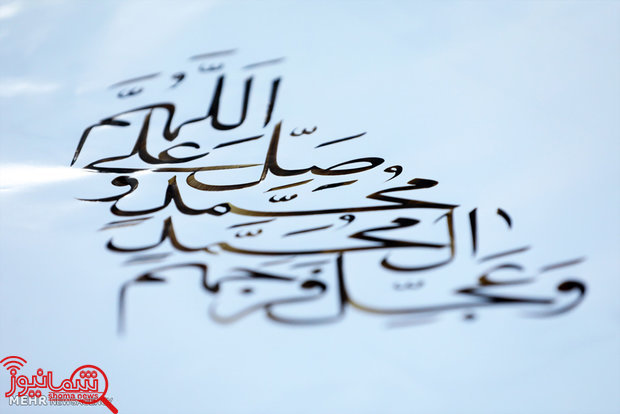 اَللّهُمَّ
صَلِّ عَلی
مُحَمَّدٍ وَ
آلِ مُحَمَّدٍ
وَ عَجِّل فَرَجَهُم
شمانیوز
shoma news
MEHR NEWS AGENCY